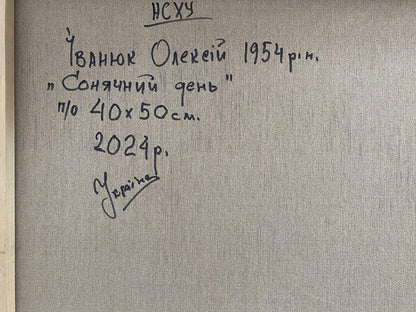 НСХУ
Іванюк Олексій 1954 р.н.
„Сонячний день"
п/о 40х50см.
2024р.
Україна